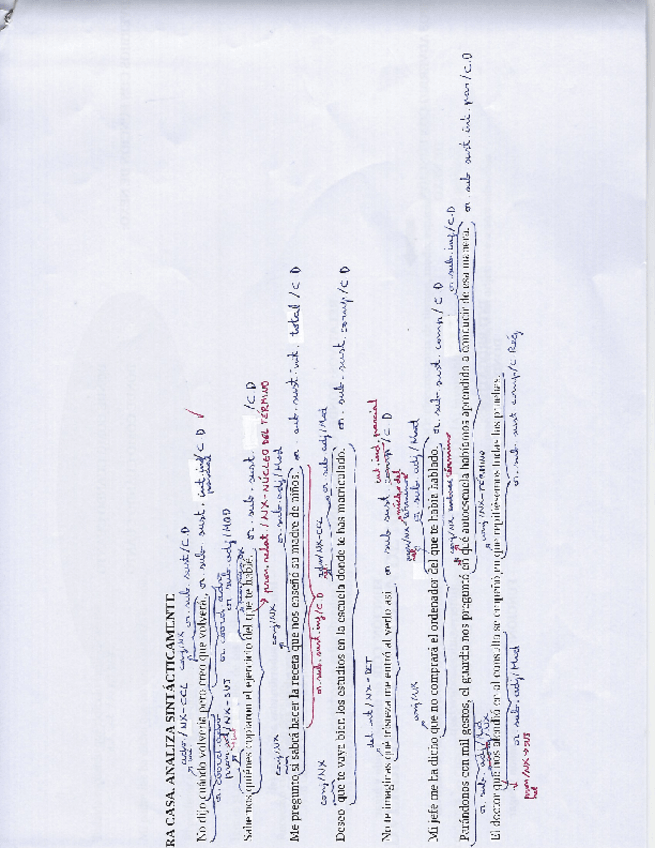 RA CASA. ANALIZA SINTÁCTICAMENTE
adv/NX-CCL conj/NX or. sub sust/C D
No dijo cuándo volvería pero creo que volverá. or sub sust. int /C D
or. coord. adv
pron. adj/NX-SUJ or sub adj/MOD
Sabemos quiénes copiaron el ejercicio del que te hablé. or. sub sust. /C D
pron. relat./NX-NÚCLEO DEL TÉRMINO
conj/NX conj/NX or. sub adj/Mod
Me pregunto si sabrá hacer la receta que nos enseñó su madre de niños. or. sub. sust. int. total /C D
or. sub. sust. inf/C D
conj/NX adv/NX-CCL or sub adj/Mod
Deseo que te vaya bien los estudios en la escuela donte te has matriculado. or. sub. sust. comp/C D
det int/NX-DET int. ind. parcial
No te imaginas qué tristeza me entró al verlo así. or sub sust comp/C D
conj/NX or sub adj/Mod
Mi jefe me ha dicho que no comprará el ordenador del que te había hablado. or. sub sust. comp/C D
or. sub. inf/C.D
Parándonos con mil gestos, el guardia nos preguntó en qué autoescuela habíamos aprendido a conducir de esa manera. or sub sust. int. par/C.D
or sub. adj/Mod conj/NX-TÉRMINO
El doctor que nos atendió en al consulta se empeñó en que repitiésemos todas las pruebas. or. sub sust comp/C Reg
pron/NX→SUJ or sub. adj/Mod
rel